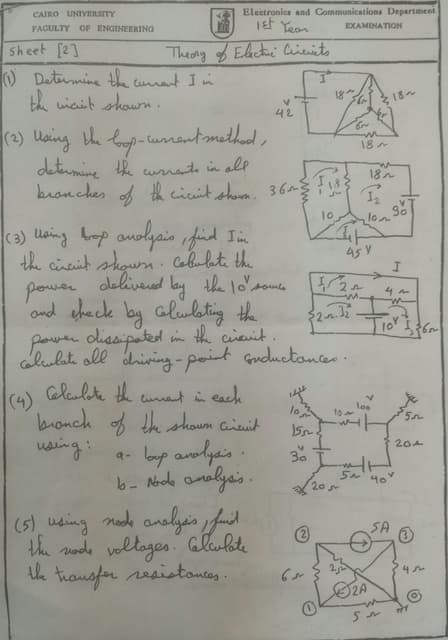 CAIRO UNIVERSITY
FACULTY OF ENGINEERING
Electronics and Communications Department
1st Year EXAMINATION
Sheet [2] Theory of Electric Circuits
(1) Determine the current I in
the circuit shown.
I
42 V
18 Ω
6 Ω
18 Ω
6 Ω
18 Ω
(2) Using the loop-current method,
determine the currents in all
branches of the circuit shown.
36 Ω
I
18
18 Ω
I2
90 V
10
10 Ω
I1
45 V
(3) Using loop analysis, find I in
the circuit shown. Calculate the
power delivered by the 10 V source
and check by calculating the
power dissipated in the circuit.
calculate all driving-point conductances.
I
I1
2 Ω
4 Ω
2 Ω
I2
10 V
I3
6 Ω
(4) Calculate the current in each
branch of the shown circuit
using: a- loop analysis.
b- Node analysis.
10 Ω
10 Ω
100 V
5 Ω
15 Ω
30 V
20 Ω
5 Ω
40 V
20 Ω
(5) using node analysis, find
the node voltages. Calculate
the transfer resistances.
5A
2
3
6 Ω
2 Ω
4 Ω
2A
1
5 Ω
0